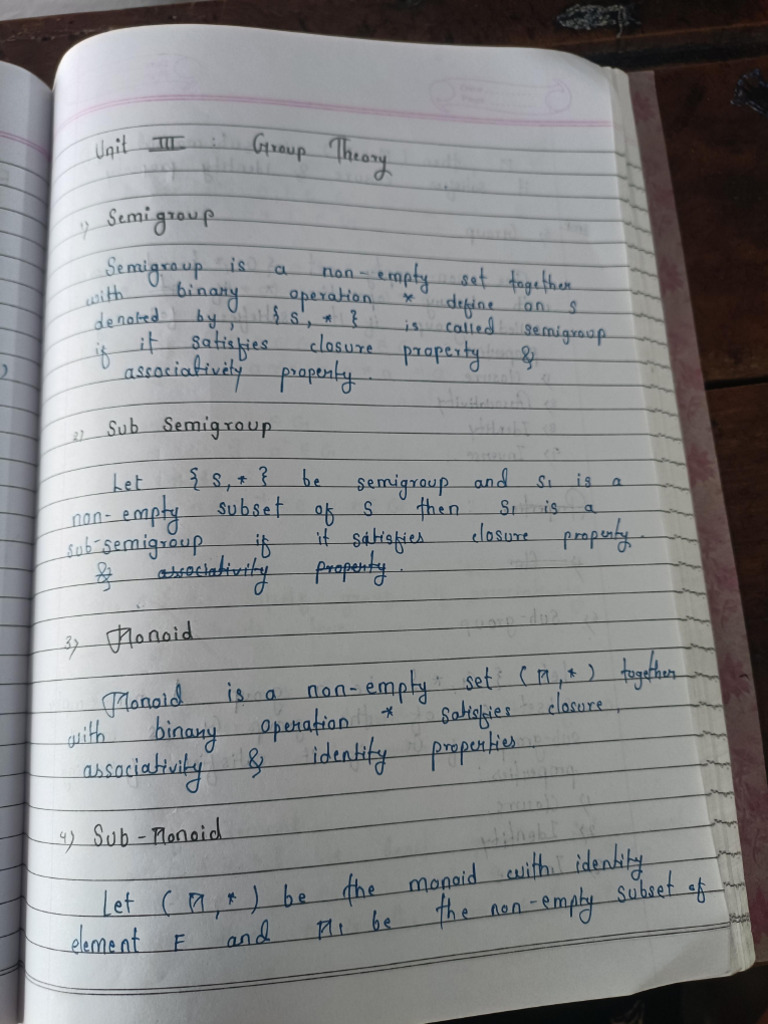 Unit III : Group Theory
1) Semigroup
Semigroup is a non-empty set together
with binary operation * define on S
denoted by, {S, *} is called semigroup
if it satisfies closure property &
associativity property.
2) Sub Semigroup
Let {S, *} be semigroup and S1 is a
non-empty subset of S then S1 is a
sub-semigroup if it satisfies closure property.
& associativity property.
3) Monoid
Monoid is a non-empty set (M, *) together
with binary operation * satisfies closure,
associativity & identity properties.
4) Sub-Monoid
Let (M, *) be the monoid with identity
element E and M1 be the non-empty subset of